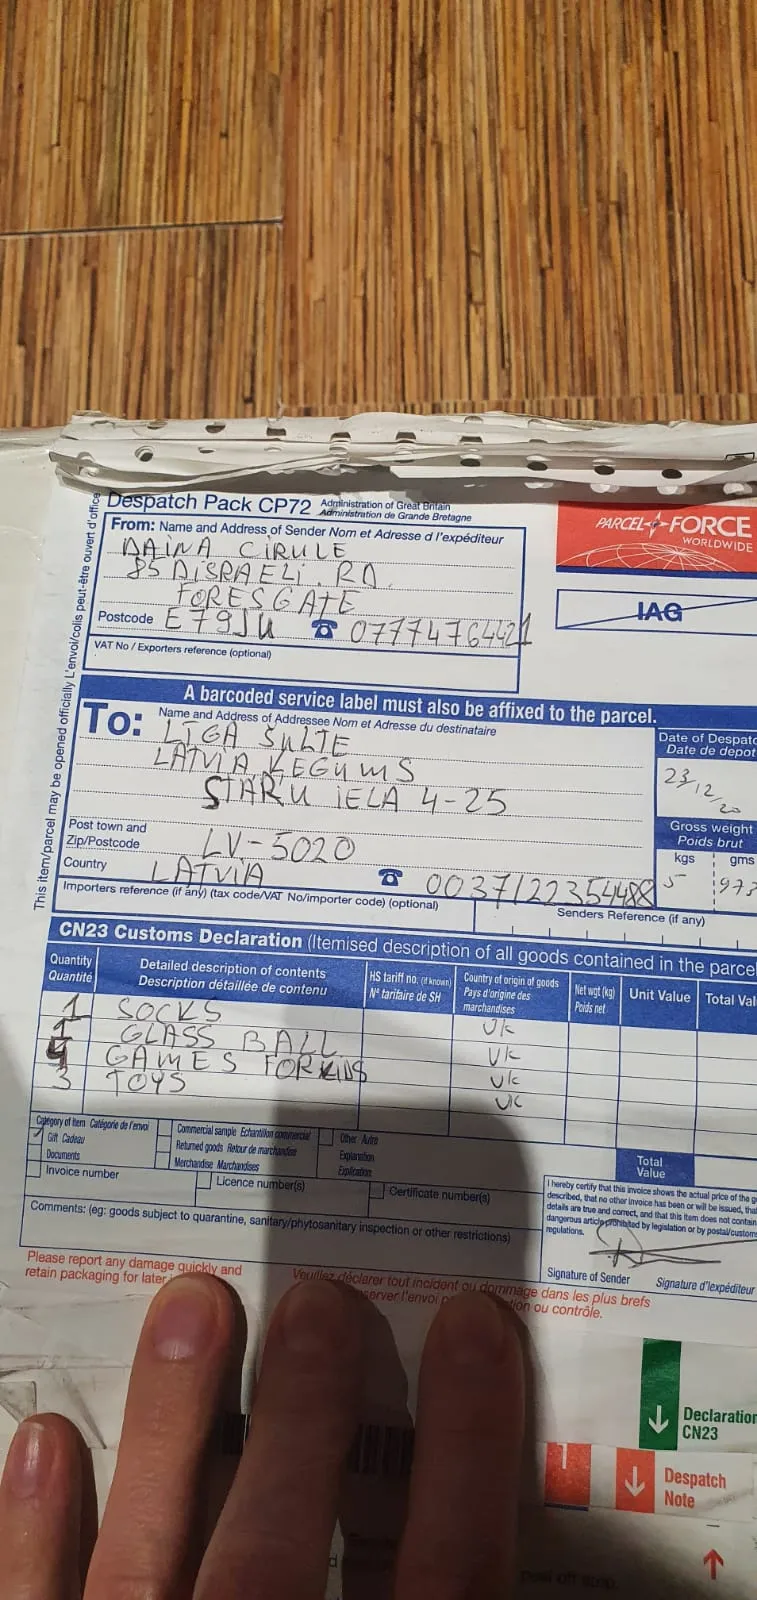 Despatch Pack CP72 Administration of Great Britain
Administration de Grande Bretagne
PARCEL FORCE
WORLDWIDE
IAG
This item/parcel may be opened officially L'envoi/colis peut-être ouvert d'office
From: Name and Address of Sender Nom et Adresse d l'expéditeur
DAINA CIRULE
85 DISRAELI. RD.
FORESGATE
Postcode E79JU ☎ 07774764421
VAT No / Exporters reference (optional)
A barcoded service label must also be affixed to the parcel.
To: Name and Address of Addressee Nom et Adresse du destinataire
LIGA ŠULTE
LATVIA, ĶEGUMS
STARU IELA 4-25
Post town and
Zip/Postcode LV-5020
Country LATVIA ☎ 0037122354488
Date of Despatc
Date de depot
23/12/20
Gross weight
Poids brut
kgs gms
5 973
Importers reference (if any) (tax code/VAT No/importer code) (optional)
Senders Reference (if any)
CN23 Customs Declaration (Itemised description of all goods contained in the parce
Quantity Detailed description of contents HS tariff no. (if known) Country of origin of goods Net wgt (kg) Unit Value Total Val
Quantité Description détaillée de contenu Nº tarifaire de SH Pays d'origine des marchandises Poids net
1 SOCKS UK
1 GLASS BALL UK
4 GAMES FOR KIDS UK
3 TOYS UK
Total
Value
Category of item Catégorie de l'envoi
Gift Cadeau
Documents
Commercial sample Echantillon commercial
Returned goods Retour de marchandise
Merchandise Marchandises
Other Autre
Explanation
Explication
Invoice number
Licence number(s)
Certificate number(s)
Comments: (eg: goods subject to quarantine, sanitary/phytosanitary inspection or other restrictions)
I hereby certify that this invoice shows the actual price of the g
described, that no other invoice has been or will be issued, tha
details are true and correct, and that this item does not contain
dangerous article prohibited by legislation or by postal/custom
regulations.
Signature of Sender Signature d'expéditeur
Please report any damage quickly and
retain packaging for later
Veuillez déclarer tout incident ou dommage dans les plus brefs
server l'envoi tion ou contrôle.
Declaration
CN23
Despatch
Note